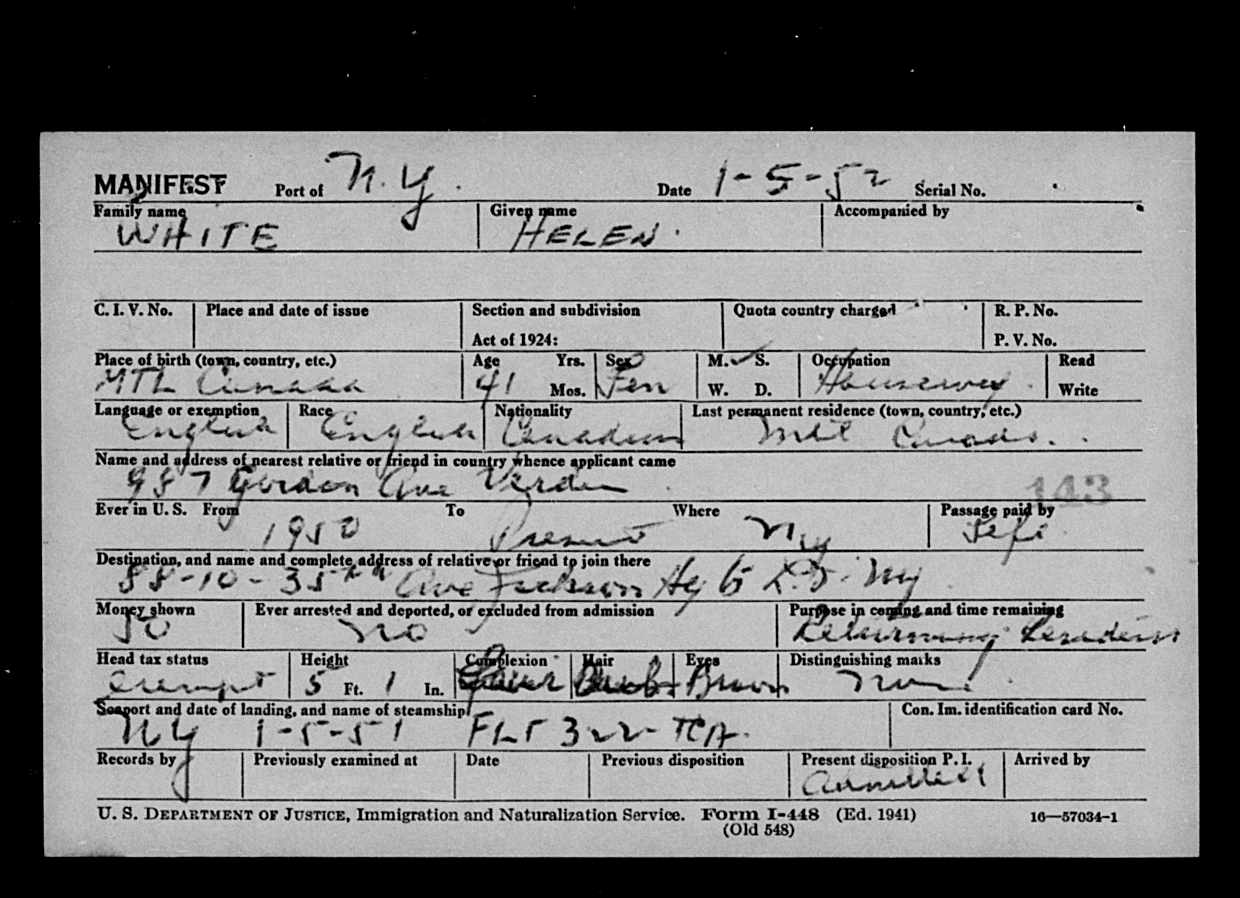 MANIFEST Port of N.Y. Date 1-5-52 Serial No.
Family name Given name Accompanied by
WHITE HELEN.
C. I. V. No. Place and date of issue Section and subdivision Quota country charged R. P. No.
Act of 1924: P. V. No.
Place of birth (town, country, etc.) Age Yrs. Sex M. ✓ S. Occupation Read
MTL Canada 41 Mos. Fem W. D. Housewife Write
Language or exemption Race Nationality Last permanent residence (town, country, etc.)
English English Canadian Mtl Canada.
Name and address of nearest relative or friend in country whence applicant came
987 Gordon Ave Verdun
143
Ever in U. S. From To Where Passage paid by
1950 Present NY Self
Destination, and name and complete address of relative or friend to join there
88-10-35th Ave Jackson Hgts L.I. NY
Money shown Ever arrested and deported, or excluded from admission Purpose in coming and time remaining
50 no Returning Resident
Head tax status Height Complexion Hair Eyes Distinguishing marks
exempt 5 Ft. 1 In. Brown None
Seaport and date of landing, and name of steamship Con. Im. identification card No.
NY 1-5-51 FLT 322-TCA.
Records by Previously examined at Date Previous disposition Present disposition P. I. Arrived by
Admitted
U. S. DEPARTMENT OF JUSTICE, Immigration and Naturalization Service. Form I-448 (Ed. 1941) 16—57034-1
(Old 548)